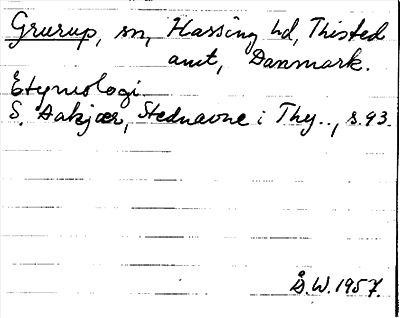 Grurup, sn, Hassing hd, Thisted
amt, Danmark.
Etymologi.
S. Aakjær, Stednavne i Thy.., s.93.
Å.W.1957.